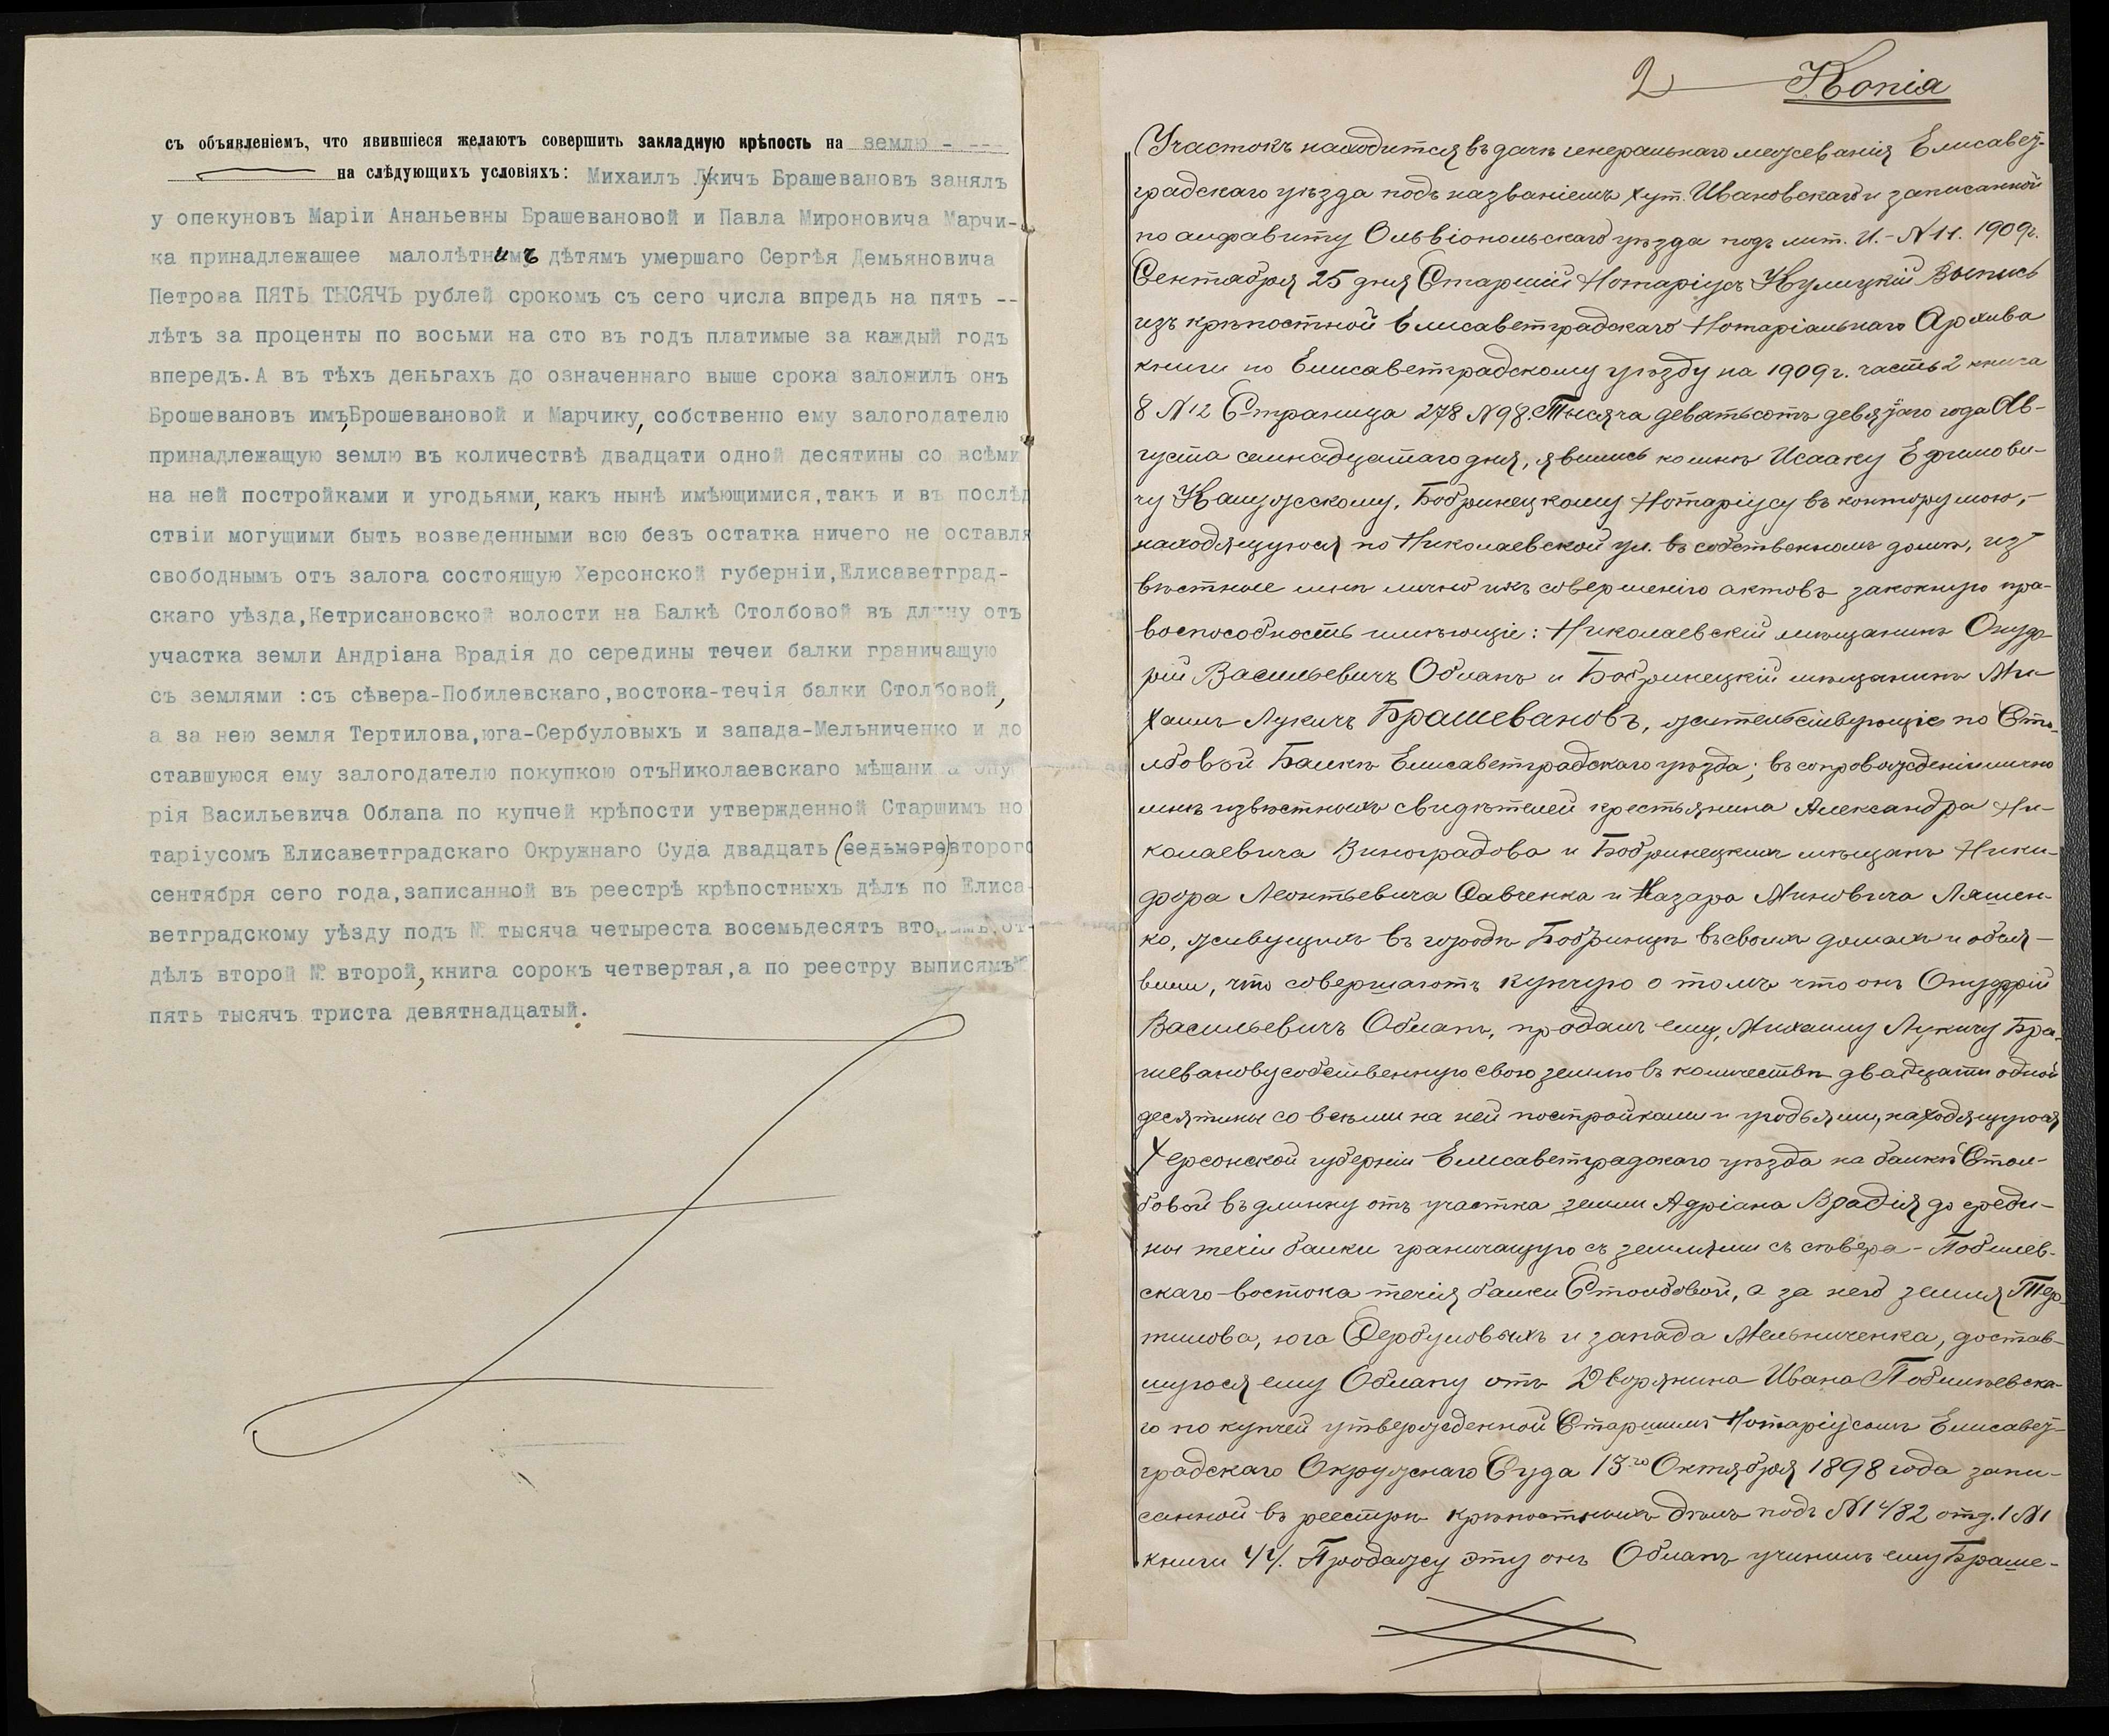 съ объявленіемъ, что явившіеся желаютъ совершить закладную крѣпость на землю - ---
на слѣдующихъ условіяхъ: Михаилъ Лукичъ Брашевановъ занялъ
у опекуновъ Маріи Ананьевны Брашевановой и Павла Мироновича Марчи-
ка принадлежащее малолѣтнимъ дѣтямъ умершаго Сергѣя Демьяновича
Петрова ПЯТЬ ТЫСЯЧЪ рублей срокомъ съ сего числа впредь на пять --
лѣтъ за проценты по восьми на сто въ годъ платимые за каждый годъ
впередъ. А въ тѣхъ деньгахъ до означеннаго выше срока заложилъ онъ
Брошевановъ имъ, Брошевановой и Марчику, собственно ему залогодателю
принадлежащую землю въ количествѣ двадцати одной десятины со всѣми
на ней постройками и угодьями, какъ нынѣ имѣющимися, такъ и въ послѣд
ствіи могущими быть возведенными всю безъ остатка ничего не оставля
свободнымъ отъ залога состоящую Херсонской губерніи, Елисаветград-
скаго уѣзда, Кетрисановской волости на Балкѣ Столбовой въ длину отъ
участка земли Андріана Врадія до середины течеи балки граничащую
съ землями :съ сѣвера-Побилевскаго, востока-течія балки Столбовой,
а за нею земля Тертилова, юга-Сербуловыхъ и запада-Мельниченко и до
ставшуюся ему залогодателю покупкою отъ Николаевскаго мѣщанина Ону
рія Васильевича Облапа по купчей крѣпости утвержденной Старшимъ но
таріусомъ Елисаветградскаго Окружнаго Суда двадцать (седьмого) второго
сентября сего года, записанной въ реестрѣ крѣпостныхъ дѣлъ по Елиса
ветградскому уѣзду подъ № тысяча четыреста восемьдесятъ вторымъ, от-
дѣлъ второй № второй, книга сорокъ четвертая, а по реестру выписямъ №
пять тысячъ триста девятнадцатый.
2 Копія
Участокъ находится въ дачѣ генеральнаго межеванія Елисавет-
градскаго уѣзда подъ названіемъ хут. Ивановскаго и записанной
по алфавиту Ольвіопольскаго уѣзда подъ лит. И.- № 11. 1909г.
Сентября 25 дня Старшій Нотаріусъ Кулицкій Выпись
изъ крѣпостной Елисаветградскаго Нотаріальнаго Архива
книги по Елисаветградскому уѣзду на 1909 г. часть 2 книга
8 № 12 Страница 278 № 98. Тысяча девятьсотъ девятаго года Ав-
густа семнадцатаго дня, явились ко мнѣ Исааку Ефимови-
чу Бобринецкому Нотаріусу въ контору мою,-
находящуюся по Николаевской ул. въ собственномъ домѣ, из-
вѣстные мнѣ лично и къ совершенію актовъ законную пра-
воспособность имѣющіе: Николаевскій мѣщанинъ Онуф-
рій Васильевичъ Облапъ и Бобринецкій мѣщанинъ Ми-
хаилъ Лукичъ Брашевановъ, жительствующіе по Сто-
лбовой Балкѣ Елисаветградскаго уѣзда; въ сопровожденіи лично
мнѣ извѣстныхъ свидѣтелей крестьянина Александра Ни-
колаевича Виноградова и Бобринецкихъ мѣщанъ Ники-
фора Леонтьевича Савченка и Назара Миновича Ляшен-
ко, живущихъ въ городѣ Бобринцѣ въ своихъ домахъ и объя-
вили, что совершаютъ купчую о томъ что онъ Онуфрій
Васильевичъ Облапъ, продалъ ему, Михаилу Лукичу Бра-
шеванову собственную свою землю въ количествѣ двадцати одной
десятины со всѣми на ней постройками и угодьями, находящуюся
Херсонской губерніи Елисаветградскаго уѣзда на балкѣ Стол-
бовой въ длинну отъ участка земли Адріана Врадія до среди-
ны течіи балки граничащую съ землями съ сѣвера - Побилев-
скаго-востока течія балки Столбовой, а за ней земля Тер-
тилова, юга Сербуловыхъ и запада Мельниченка, достав-
шуюся ему Облапу отъ Дворянина Ивана Побилѣевска-
го по купчей утвержденной Старшимъ Нотаріусомъ Елисавет-
градскаго Окружнаго Суда 13го Октября 1898 года запи-
санной въ реестрѣ крѣпостныхъ дѣлъ подъ № 1482 отд. 1 № 1
книги 44. Продажу эту онъ Облапъ учинилъ ему Браше-